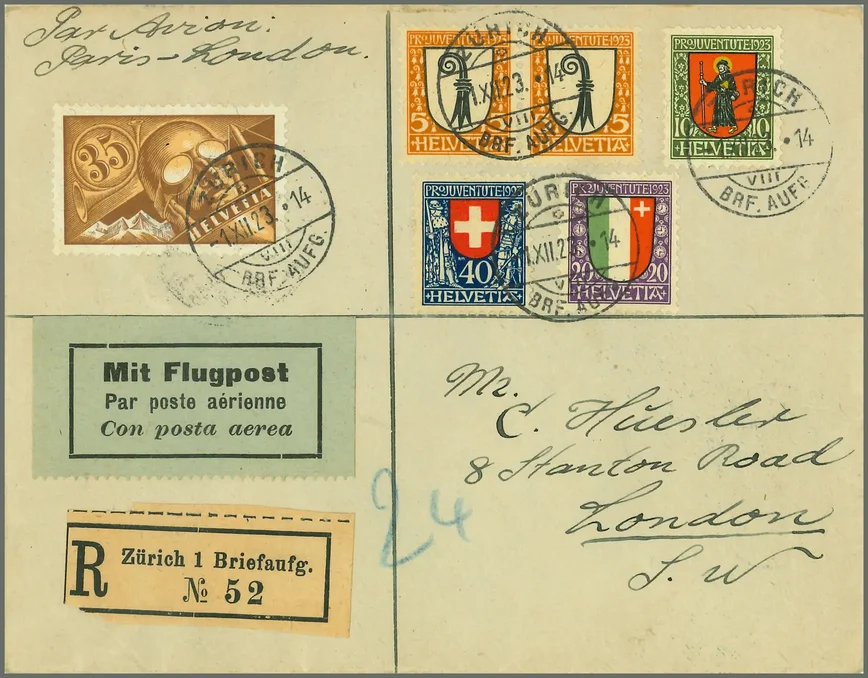 Par Avion:
Paris-London.
35
HELVETIA
ZÜRICH
-1.XII.23.•14
VIII
BRF. AUFG.
PROJUVENTUTE1923
5
+HELVETIA+
PROJUVENTUTE1923
5
+HELVETIA+
ZÜRICH
1.XII.23.•14
VIII
BRF. AUFG.
PROJUVENTUTE1923
10 10
+HELVETIA+
•14
VIII
BRF. AUFG.
PROJUVENTUTE1923
40
+HELVETIA+
PROJUVENTUTE1923
20 20
+HELVETIA+
1.XII.23 •14
BRF. AUFG
Mit Flugpost
Par poste aérienne
Con posta aerea
R
Zürich 1 Briefaufg.
№ 52
24
Mr.
C. Huesler
8 Stanton Road
London
S. W